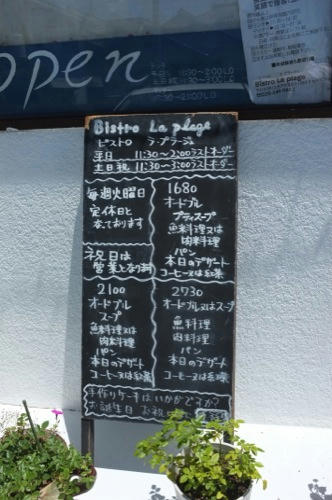 open
Bistro La plage
Bistro La plage
ビストロ ラ・プラージュ
平日 11:30〜2:00ラストオーダー
土日祝 11:30〜3:00ラストオーダー
毎週火曜日
定休日と
なっております
祝日は
営業となります
1680
オードブル
プティスープ
魚料理又は
肉料理
パン
本日のデザート
コーヒー又は紅茶
2100
オードブル
スープ
魚料理又は
肉料理
パン
本日のデザート
コーヒー又は紅茶
2730
オードブル又はスープ
魚料理
肉料理
パン
本日のデザート
コーヒー又は紅茶
手作りケーキはいかがですか?
お誕生日 お祝